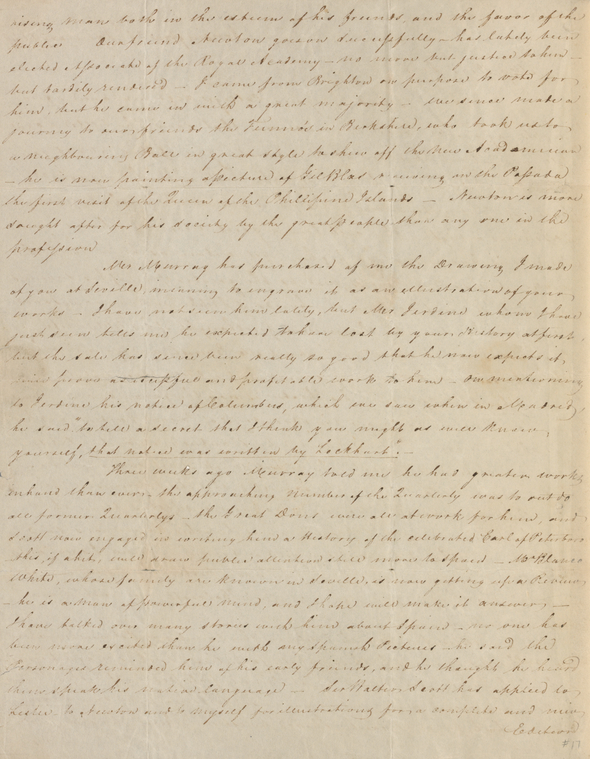 rising man both in the esteem of his friends, and the favor of the
public Our friend Newton goes on successfully – has lately been
elected Associate of the Royal Academy – no more than justice taken –
but tardily rendered – I came from Brighton on purpose to vote for
him, but he came in with a great majority – we since made a
journey to our friends the in Berkshire, who took us to
a neighbouring Ball in great style to shew off the New Academician
– he is now painting a Picture of Gil Blas on the Passada
the first visit of the Queen of the Phillipine Islands – Newton is more
sought after for his society by the great people than any one in the
profession
Mr Murray has purchased of me the Drawing I made
of you at Seville, meaning to engrave it as an illustration of your
works – I have not seen him lately, but Mr Jerdine whom I have
just seen tells me he expected to have lost by your History at first,
but the sale has since been really so good that he now expects it
will prove and profitable work to him – on mentioning
to Jerdine his notice of Columbus, which we saw when in Madrid,
he said "to tell a secret that I think you might as well know
yourself, that notice was written by Lockhart" –
Three weeks ago Murray told me he had greater works
in hand than ever – the approaching Number of the Quarterly was to out do
all former Quarterlys – the Great Dons were all at work for him, and
Scott now engaged in writing him a History of the celebrated Earl of Peterboro
this, if a hit, will draw public attention still more to Spain – Mr Blanco
White, whose family are known in Seville, is now getting up a Review
– he is a Man of powerful mind, and I hope will make it answer –
I have talked over many stories with him about Spain – no one has
been more excited than he with my Spanish Pictures – he said the
Personages reminded him of his early friends, and he thought he heard
them speak his native language – Sir Walter Scott has applied to
Leslie to Newton and to myself for illustrations for a complete and new
Edition